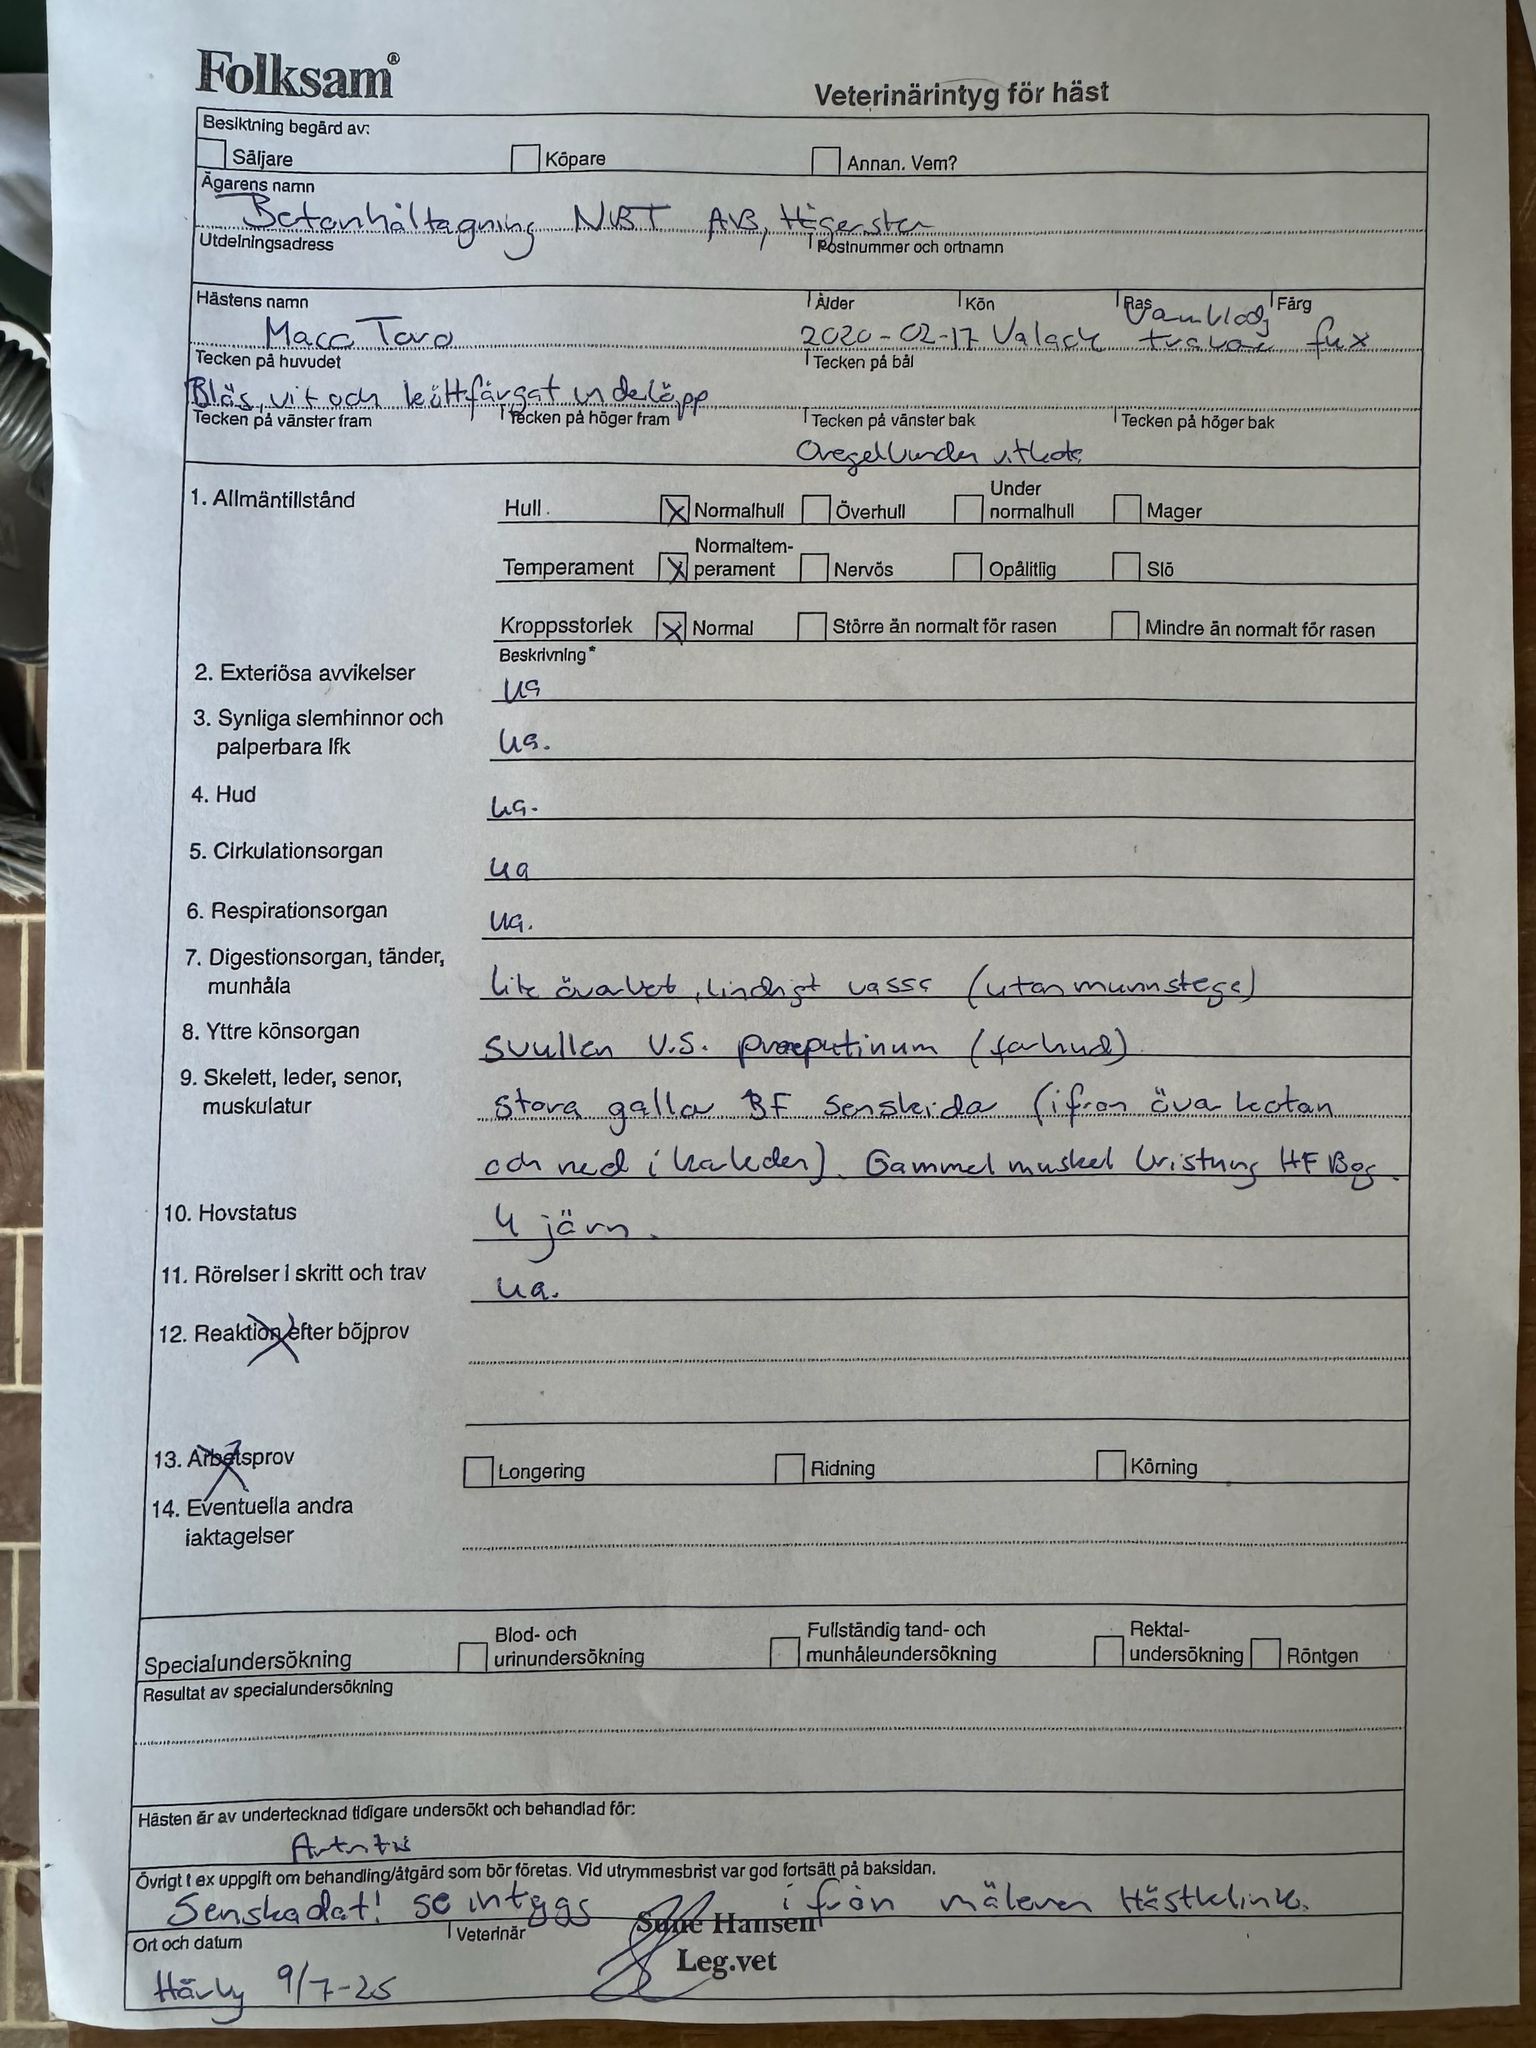 Folksam®
Veterinärintyg för häst
Besiktning begärd av:
Säljare Köpare Annan. Vem?
Ägarens namn
Betonhåltagning NBT AB, Hägersten
Utdelningsadress Postnummer och ortnamn
Hästens namn Ålder Kön Ras Färg
Maco Toro 2020-02-17 Valack Varmblodig travare fux
Tecken på huvudet Tecken på bål
Bläs, vit och köttfärgat underläpp
Tecken på vänster fram Tecken på höger fram Tecken på vänster bak Tecken på höger bak
Oregelbunden vitkota
1. Allmäntillstånd Hull. X Normalhull Överhull Under normalhull Mager
Temperament X Normaltem-perament Nervös Opålitlig Slö
Kroppsstorlek X Normal Större än normalt för rasen Mindre än normalt för rasen
Beskrivning*
2. Exteriösa avvikelser ua
3. Synliga slemhinnor och
palperbara lfk ua.
4. Hud ua.
5. Cirkulationsorgan ua
6. Respirationsorgan ua.
7. Digestionsorgan, tänder,
munhåla lite överbet, lindrigt vassa (utan munnstege)
8. Yttre könsorgan svullen V.S. praeputinum (förhud)
9. Skelett, leder, senor,
muskulatur stora gallor BF senskida (ifrån över kotan
och ned i karleden). Gammel muskel bristning HF Bog.
10. Hovstatus 4 järn.
11. Rörelser i skritt och trav ua.
12. Reaktion efter böjprov
13. Arbetsprov Longering Ridning Körning
14. Eventuella andra
iaktagelser
Specialundersökning Blod- och urinundersökning Fullständig tand- och munhåleundersökning Rektal-undersökning Röntgen
Resultat av specialundersökning
Hästen är av undertecknad tidigare undersökt och behandlad för:
Artritis
Övrigt t ex uppgift om behandling/åtgärd som bör företas. Vid utrymmesbrist var god fortsätt på baksidan.
Senskadat! se intygs ifrån mälaren Hästklinik.
Ort och datum Veterinär Sune Hansen
Leg.vet
Härby 9/7-25